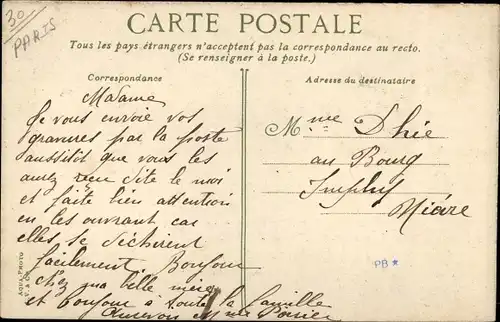 30
PARIS
CARTE POSTALE
Tous les pays étrangers n'acceptent pas la correspondance au recto.
(Se renseigner à la poste.)
Correspondance
Madame
Je vous envoie vos
gravures par la poste
aussitôt que vous les
aurez reçu dite le moi
et faite bien attention
en les ouvrant car
elles se déchirent
facilement Bonjour
chez ma belle mère
et bonjour à toute la famille
Mme
Adresse du destinataire
Mme Dhée
au Bourg
Imphy
Nièvre
PB*
AQUA-PHOTO